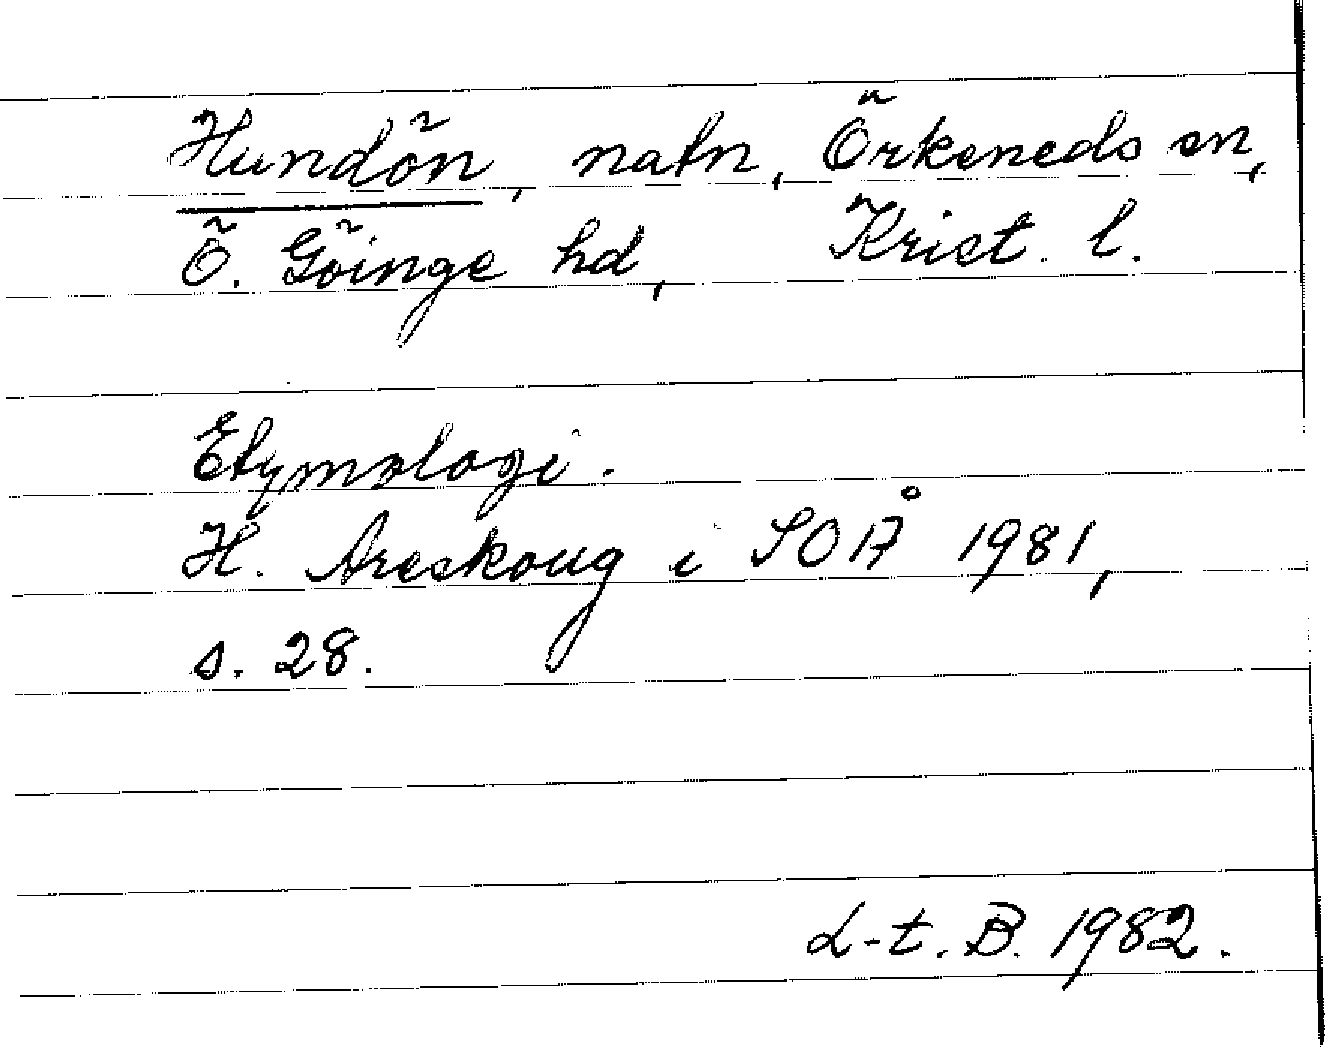 Hundön, natn, Örkeneds sn,
Ö. Göinge hd, Krist. l.
Etymologi.
H. Areskoug i SOÅ 1981,
s. 28.
L-t. B. 1982.